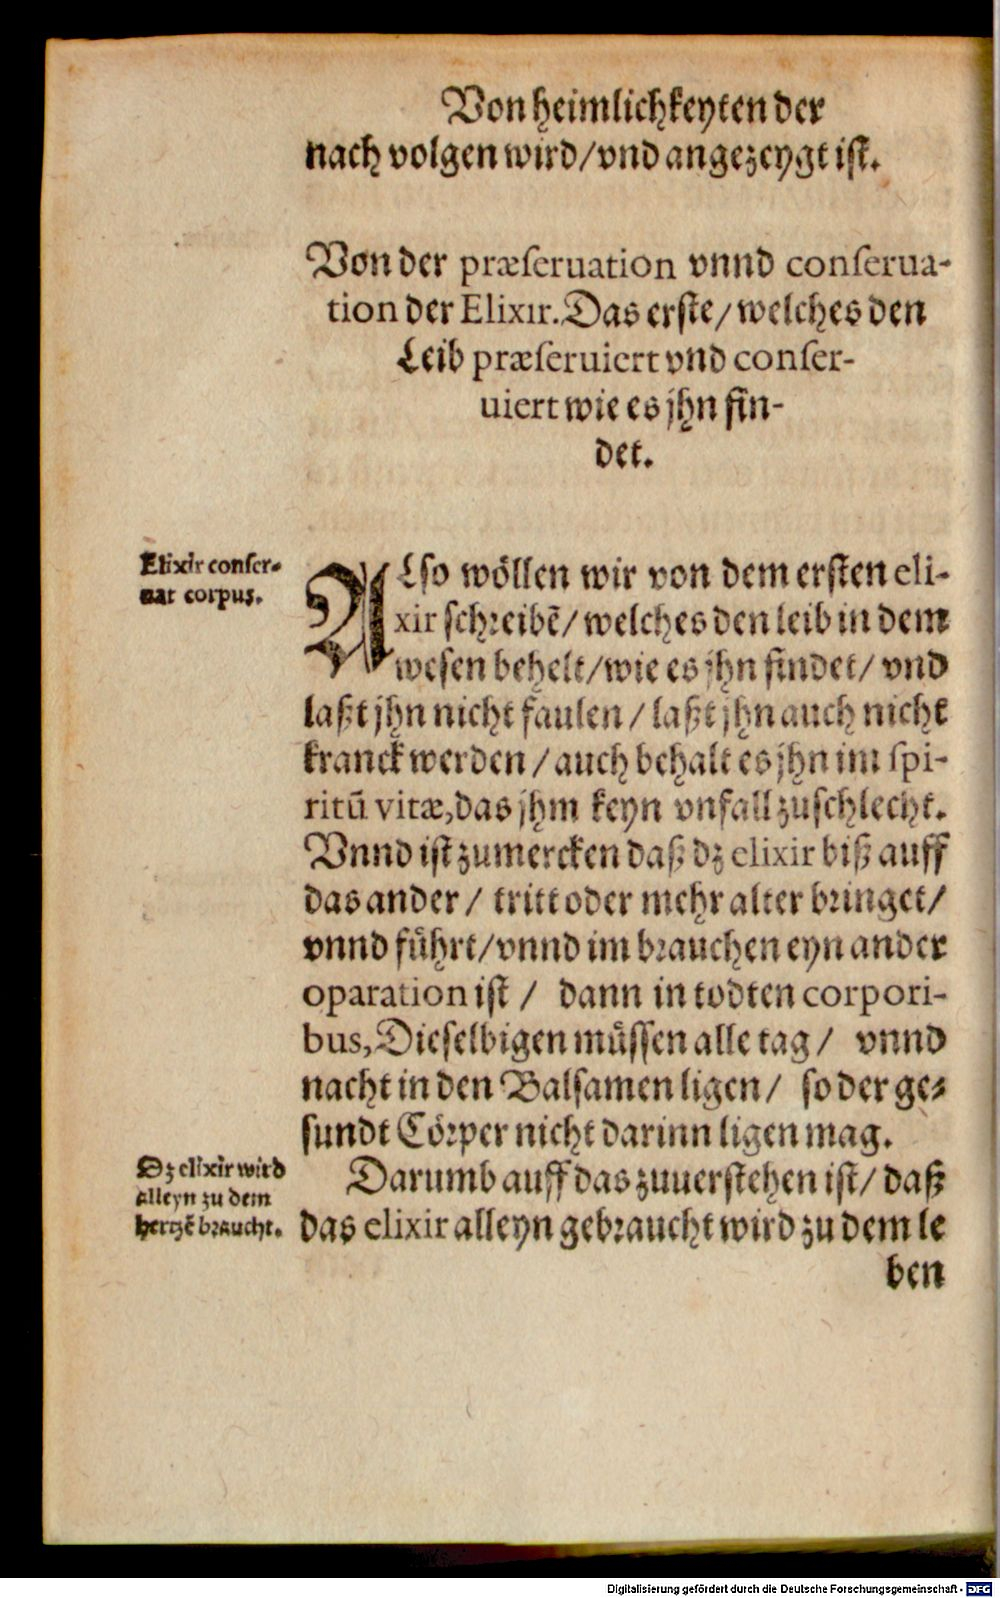 Von heimlichkeyten der
nach volgen wird/vnd angezeygt ist.
Von der præſeruation vnnd conſerua-
tion der Elixir. Das erſte/welches den
Leib præſeruiert vnd conſer-
uiert wie es jhn fin-
det.
Elixir conſer-
uat corpus.
ALſo wöllen wir von dem erſten eli-
xir ſchreibē/welches den leib in dem
weſen behelt/wie es jhn findet/ vnd
laßt jhn nicht faulen / laßt jhn auch nicht
kranck werden / auch behalt es jhn im ſpi-
ritū vitæ, das jhm keyn vnfall zuſchlecht.
Vnnd iſt zumercken daß dz elixir biß auff
das ander / tritt oder mehr alter bringet/
vnnd fůhrt/vnnd im brauchen eyn ander
oparation iſt / dann in todten corpori-
bus, Dieſelbigen můſſen alle tag / vnnd
nacht in den Balſamen ligen / ſo der ge-
ſundt Cörper nicht darinn ligen mag.
Dz elixir wird
alleyn zu dem
hertzē braucht.
Darumb auff das zuuerſtehen iſt/ daß
das elixir alleyn gebraucht wird zu dem le
ben
Digitalisierung gefördert durch die Deutsche Forschungsgemeinschaft - DFG